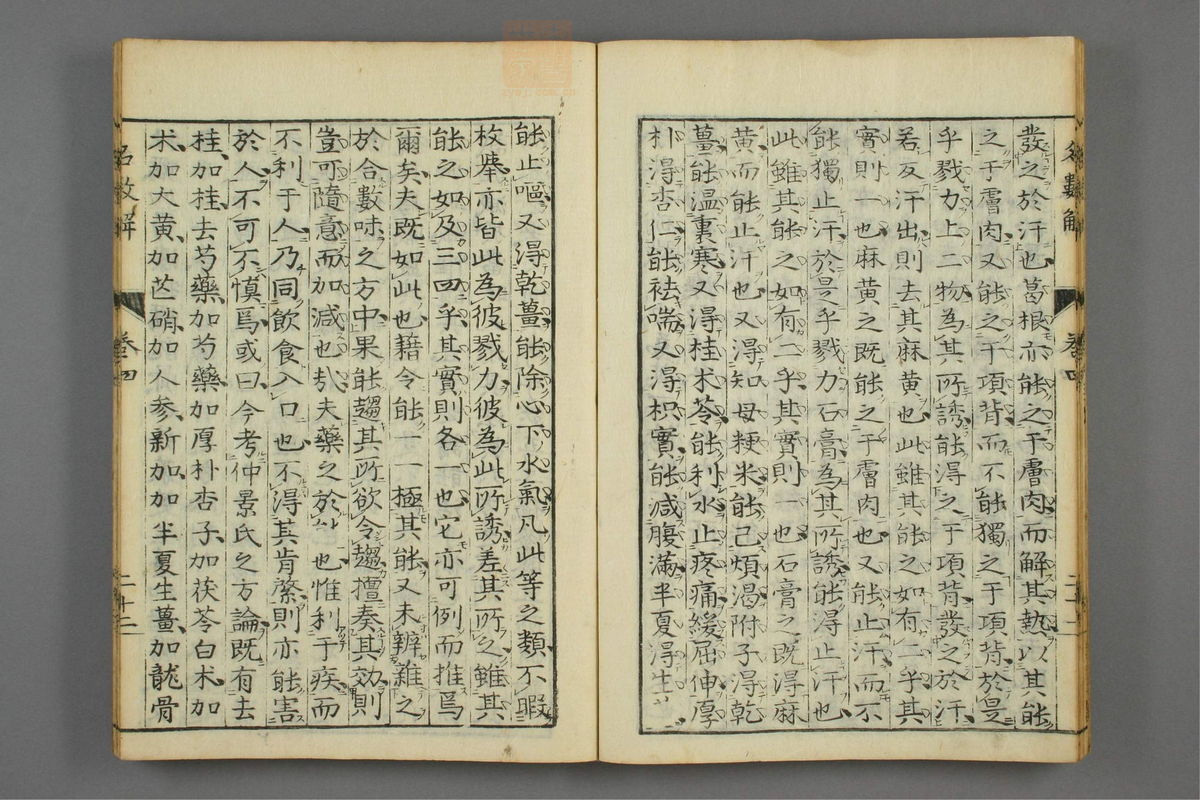 發之於汗也葛根亦能之于膚肉而解其熱以其能
之于膚肉又能之于項背而不能獨之于項背於是
乎戮力上二物為其所誘能得之于項背發之於汗
若反汗出則去其麻黄也此雖其能之如有二乎其
實則一也麻黄之既能之于膚肉也又能止汗而不
能獨止汗於是乎戮力石膏為其所誘能得止汗也
此雖其能之如有二乎其實則一也石膏之既得麻
黄而能止汗也又得知母粳米能己煩渴附子得乾
薑能温裏寒又得桂术苓能利水止疼痛緩屈伸厚
朴得杏仁能祛喘又得枳實能減腹滿半夏得生
能止嘔又得乾薑能除心下水氣凡此等之類不暇
枚舉亦皆此為彼戮力彼為此所誘差其所之雖其
能之如及三四乎其實則各一也它亦可例而推焉
爾矣夫既如此也藉令能一一極其能又未辨雜之
於合數味之方中果能趨其所欲令趨擅奏其効則
豈可隨意而加減也哉夫藥之於 也惟利于疾而
不利于人乃同飲食入口也不得其肯綮則亦能害
於人不可不慎焉或曰今考仲景氏之方論既有去
桂加桂去芍藥加芍藥加厚朴杏子加茯苓白术加
术加大黄加芒硝加人参新加加半夏生薑加龍骨
名數解
卷四
二十二
名數解
卷四